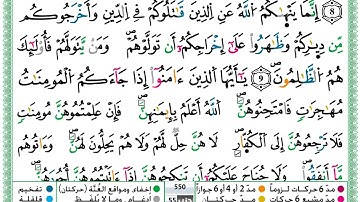 8 إِنَّمَا يَنْهَىٰكُمُ ٱللَّهُ عَنِ ٱلَّذِينَ قَٰتَلُوكُمْ فِى ٱلدِّينِ وَأَخْرَجُوكُم
مِّن دِيَٰرِكُمْ وَظَٰهَرُوا۟ عَلَىٰٓ إِخْرَاجِكُمْ أَن تَوَلَّوْهُمْ ۚ وَمَن يَتَوَلَّهُمْ فَأُو۟لَٰٓئِكَ
هُمُ ٱلظَّٰلِمُونَ 9 يَٰٓأَيُّهَا ٱلَّذِينَ ءَامَنُوٓا۟ إِذَا جَآءَكُمُ ٱلْمُؤْمِنَٰتُ
مُهَٰجِرَٰتٍ فَٱمْتَحِنُوهُنَّ ۖ ٱللَّهُ أَعْلَمُ بِإِيمَٰنِهِنَّ ۖ فَإِنْ عَلِمْتُمُوهُنَّ مُؤْمِنَٰتٍ
فَلَا تَرْجِعُوهُنَّ إِلَى ٱلْكُفَّارِ ۖ لَا هُنَّ حِلٌّ لَّهُمْ وَلَا هُمْ يَحِلُّونَ لَهُنَّ ۖ وَءَاتُوهُم
مَّآ أَنفَقُوا۟ ۚ وَلَا جُنَاحَ عَلَيْكُمْ أَن تَنكِحُوهُنَّ إِذَآ ءَاتَيْتُمُوهُنَّ
مدّ 6 حركات لزوماً مدّ 2 أو 4 أو 6 جوازاً إخفاء، ومواقع الغُنَّة (حركتان) تفخيم
مدّ مشبع 6 حركات مدّ حركتان إدغام، وما لا يُلفظ قلقلة
550